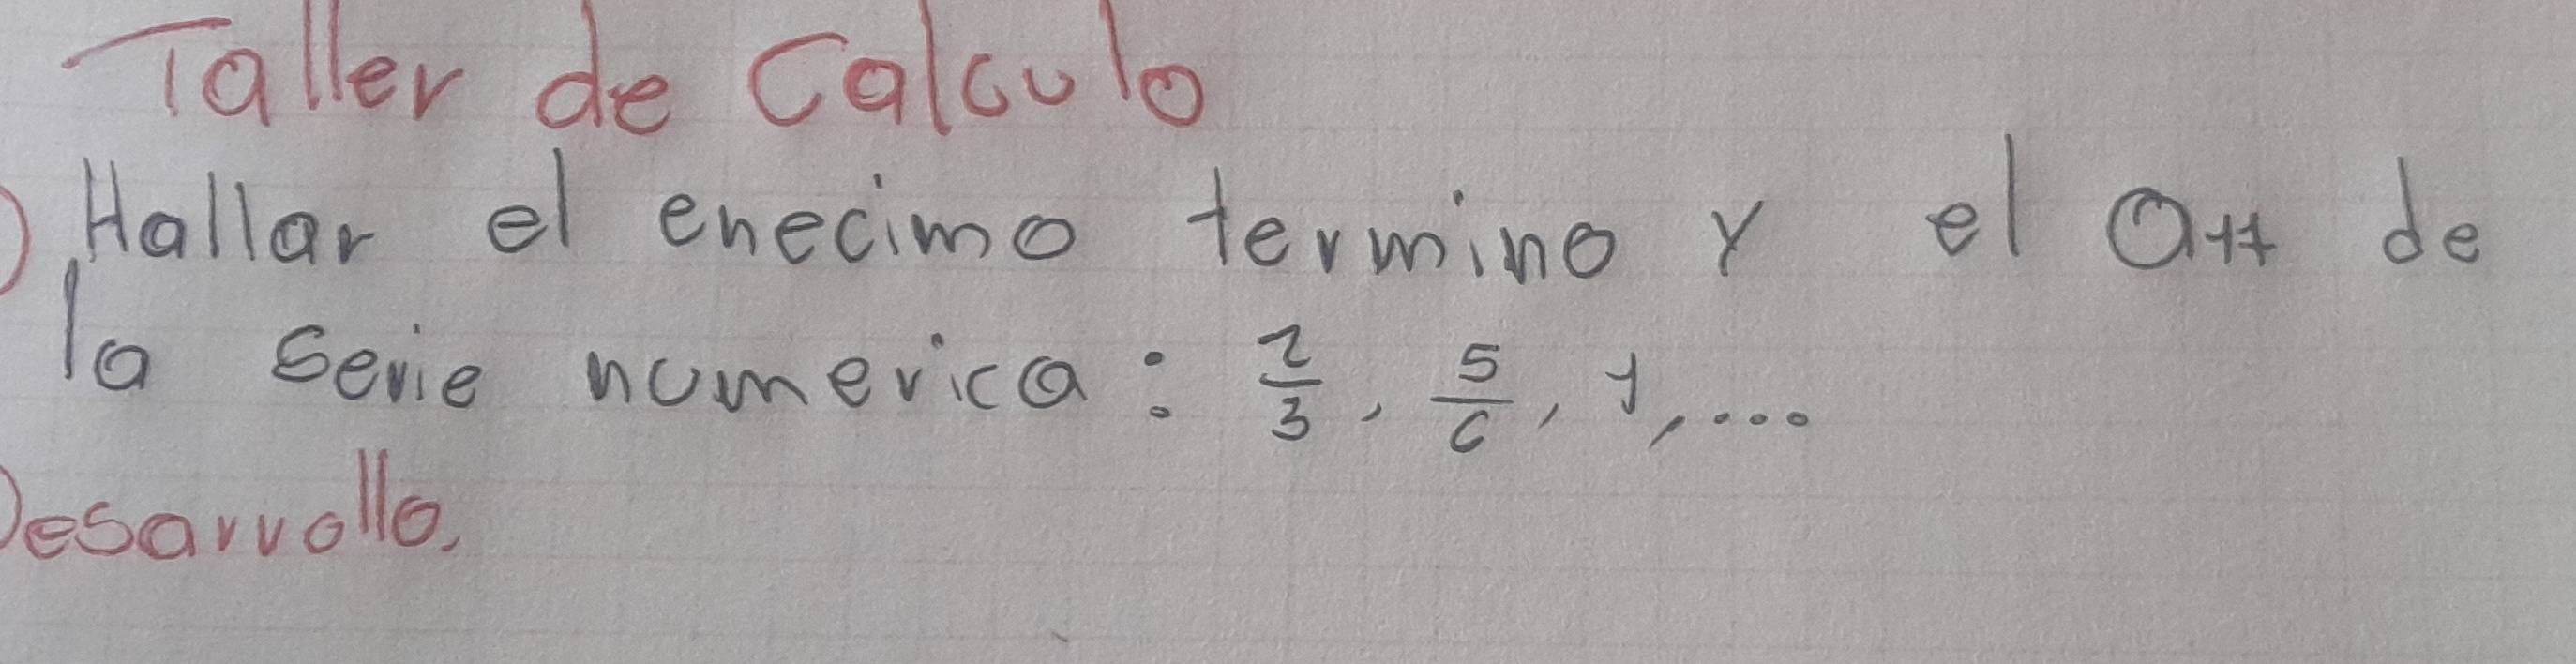 Taller de Calculo
) Hallar el enecimo termino y el a₁₁ de
la serie numerica: 2/3, 5/6, 1, ...
Desarrollo.